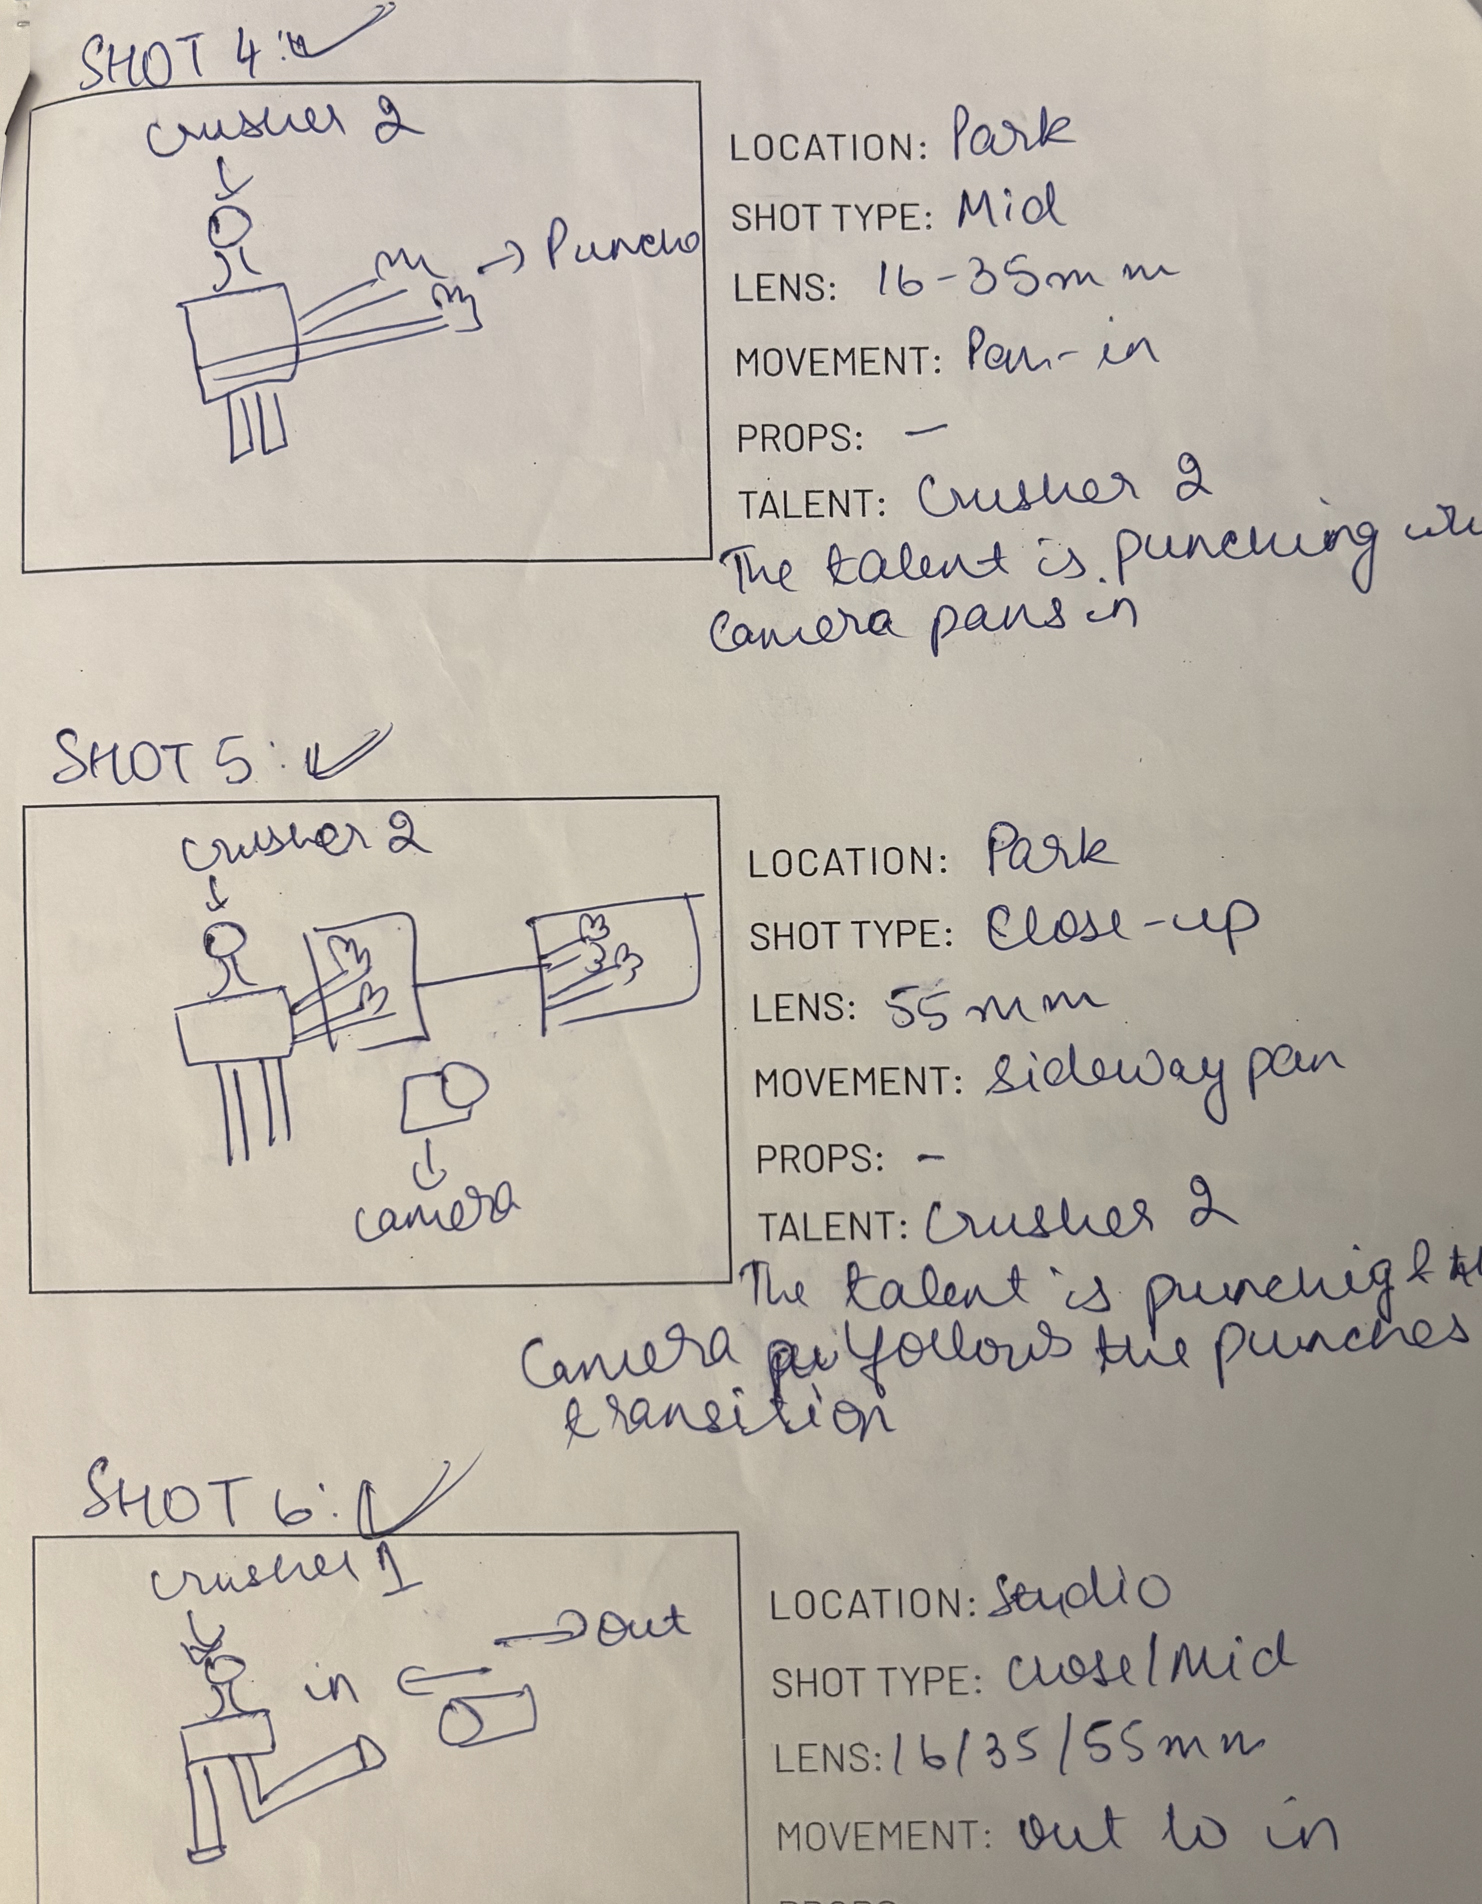 SHOT 4:
Crusher 2
→ Punch
LOCATION: Park
SHOT TYPE: Mid
LENS: 16-35mm
MOVEMENT: Pan-in
PROPS: —
TALENT: Crusher 2
The talent is punching
Camera pans in
SHOT 5:
Crusher 2
camera
LOCATION: Park
SHOT TYPE: Close-up
LENS: 55mm
MOVEMENT: sideway pan
PROPS: -
TALENT: Crusher 2
The talent is punchig &
Camera follows the punches
transition
SHOT 6:
Crusher 1
→ out
in
LOCATION: Studio
SHOT TYPE: Close/Mid
LENS: 16/35/55mm
MOVEMENT: out to in
PROPS